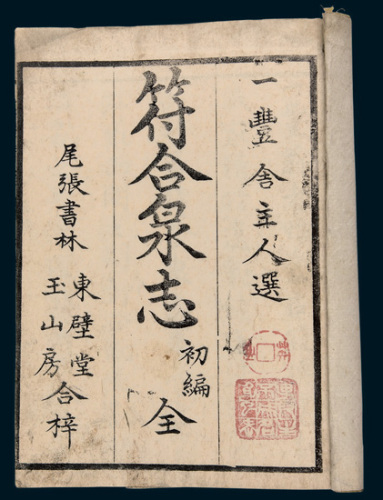 一豐舎主人選
符合泉志
初編
全
尾張書林
東壁堂
玉山房
合梓